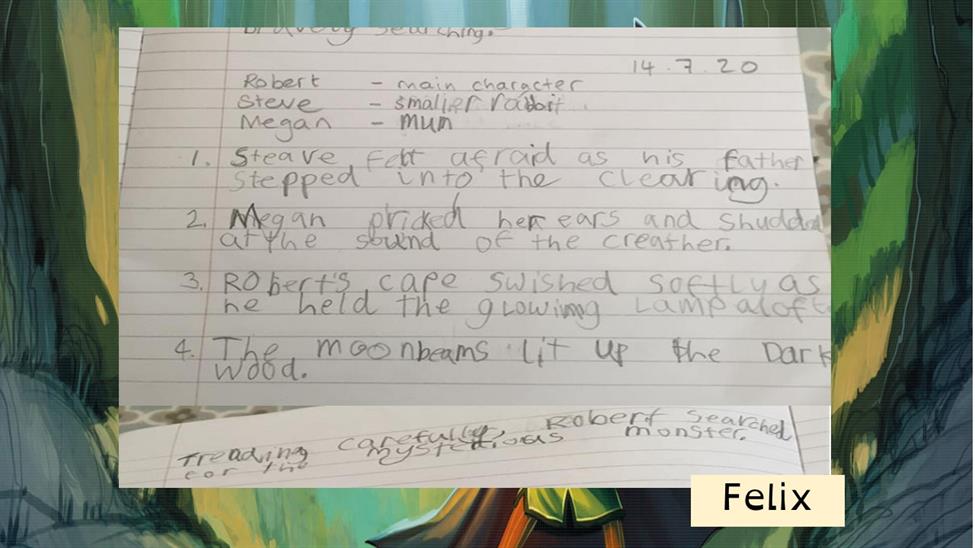 bravely searching.
14.7.20
Robert - main character
Steve - smaller rabbit
Megan - mum
1. Steave felt afraid as his father
stepped into the clearing.
2. Megan pricked her ears and shudded
at the sound of the creather.
3. Robert's cape swished softly as
he held the glowing lamp aloft
4. The moonbeams lit up the Dark
wood.
Treading carefully, Robert searched
for the mysterious monster.
Felix